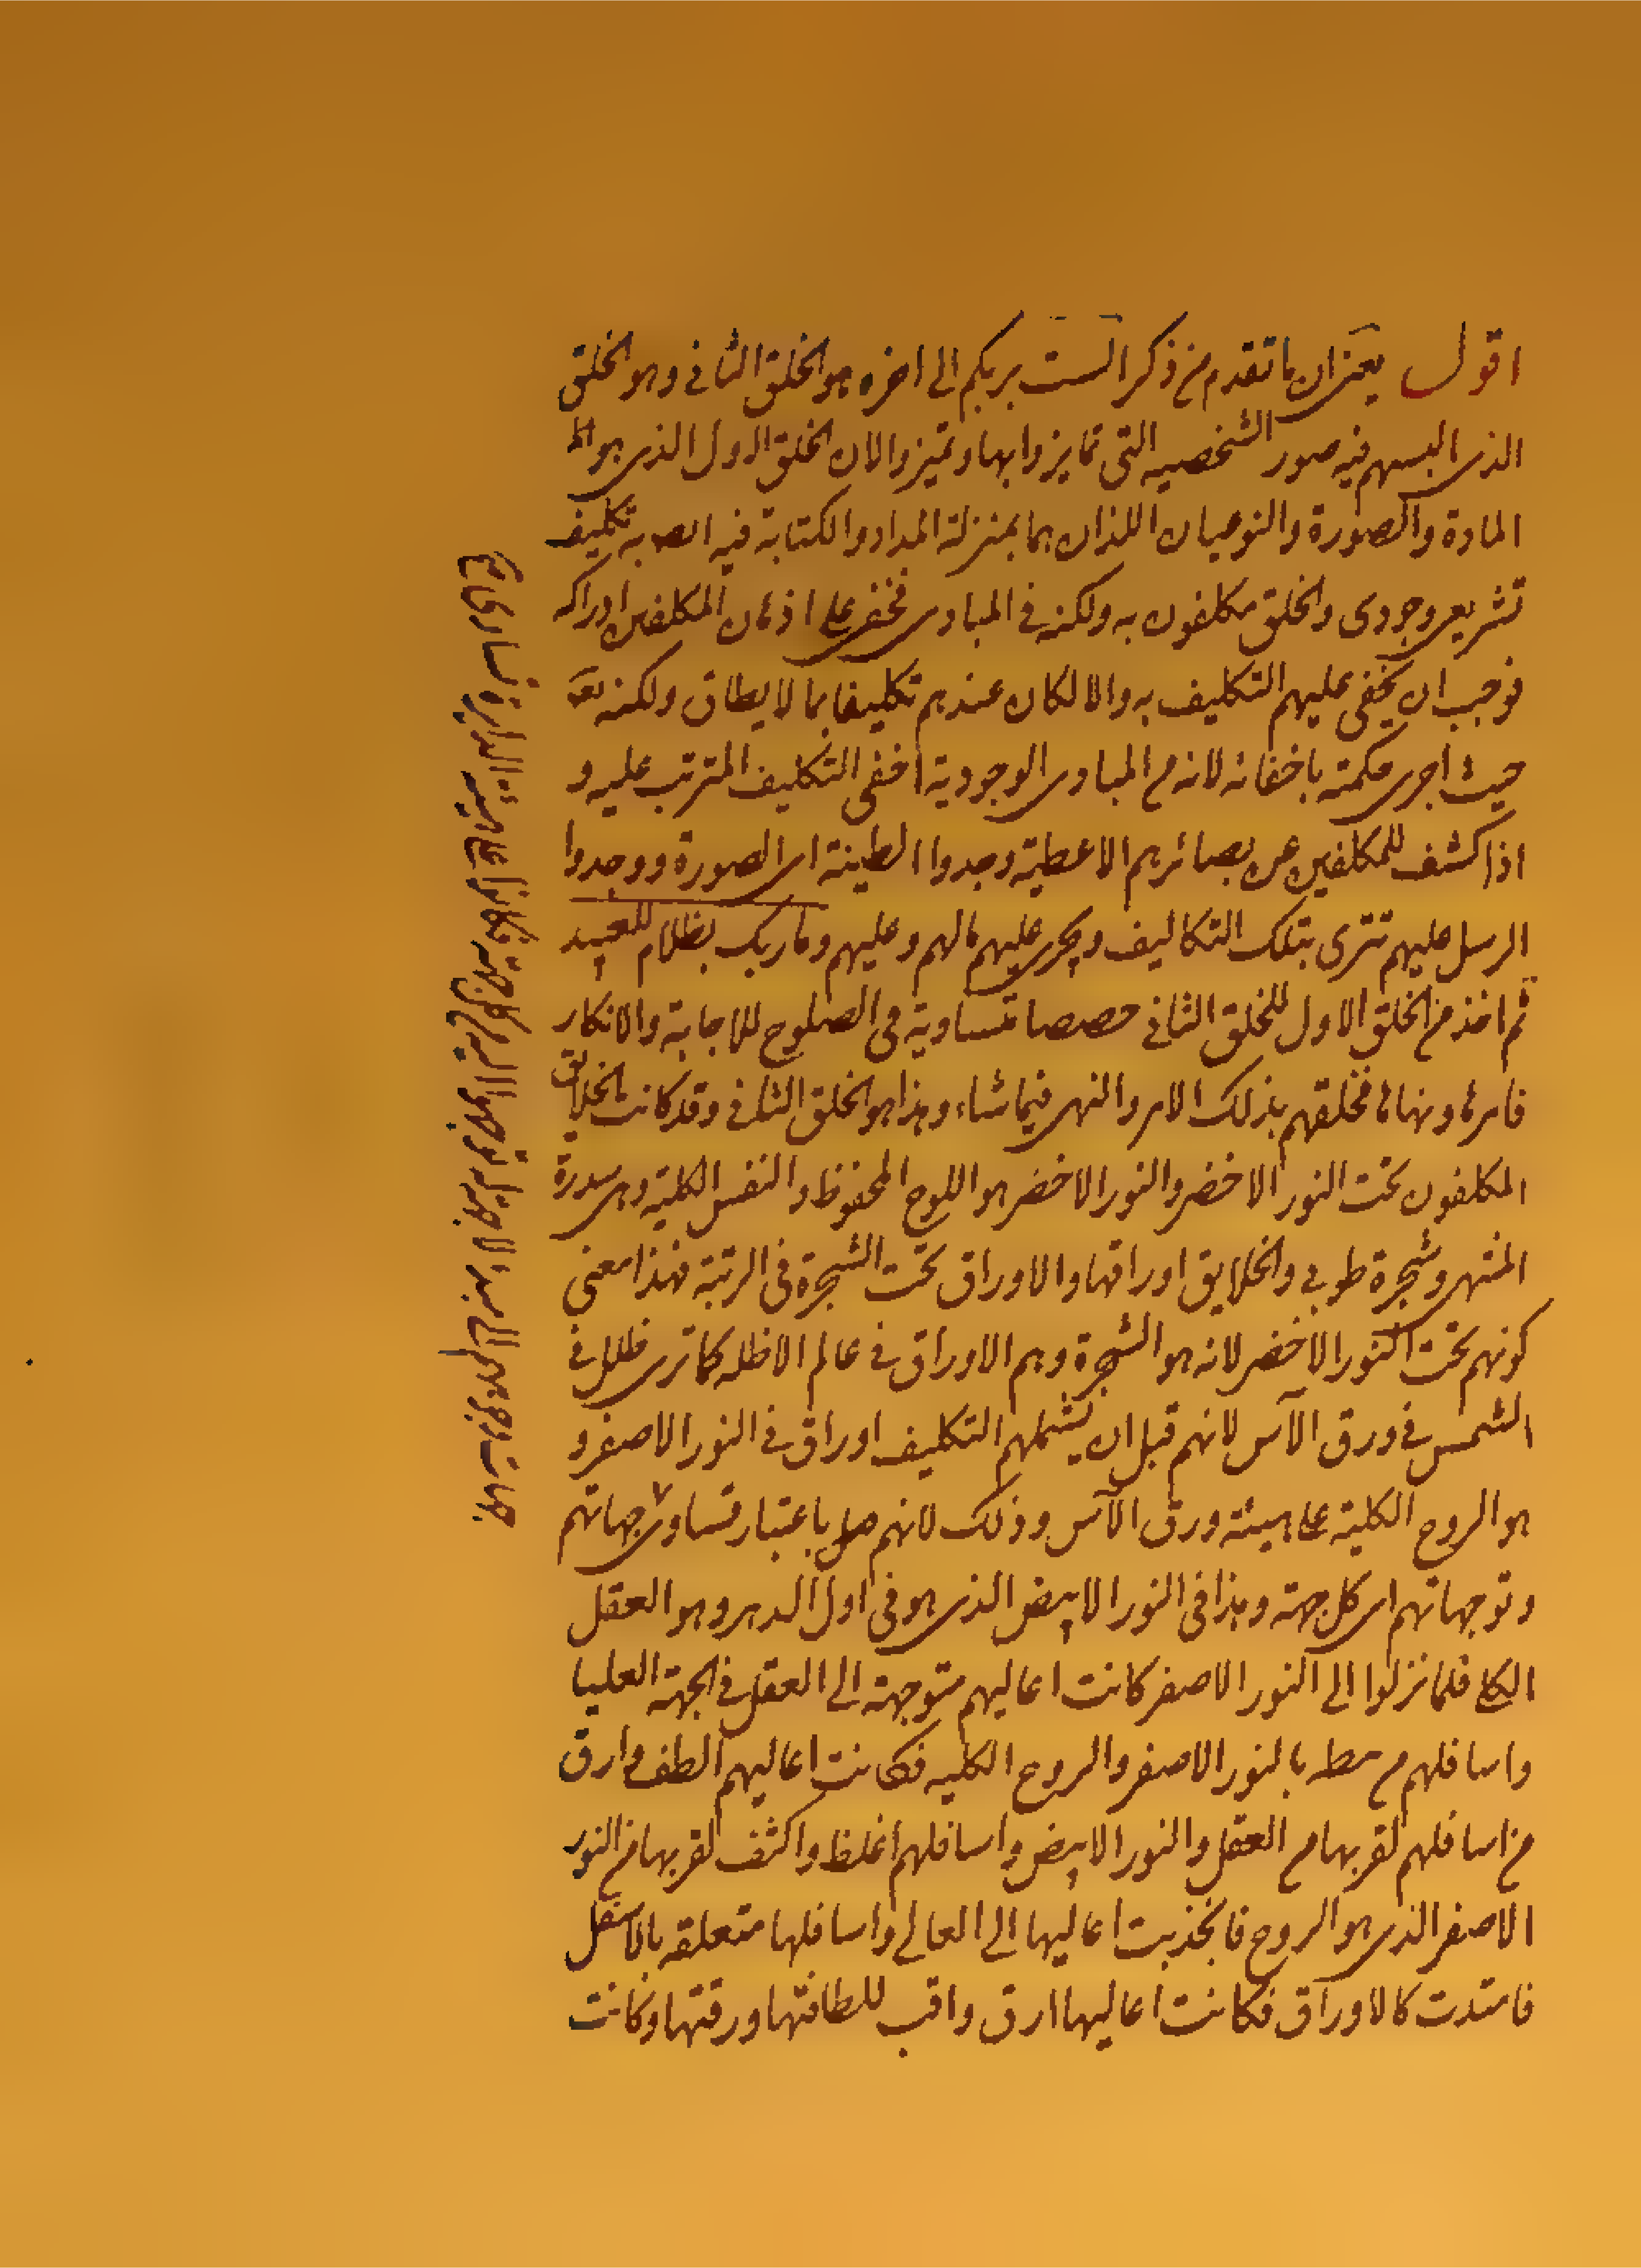 اقول يعنى ان ما تقدم من ذكر الست بربكم الى اخره هو الخلق الثانى وهو الخلق
الذى البسهم فيه صور الشخصيه التى تمايزوا بها وتميزوا لان الخلق الاول الذى هو
المادة والصورة والنوعيان اللذان هما بمنزلة المداد والكتابة فيه تكليف
تشريعى وجودى والخلق مكلفون به ولكنه فى المبادى فخفى على اذهان المكلفين ادراكه
فوجب ان يخفى عليهم التكليف به والا لكان عندهم تكليفا بما لا يطاق ولكنه تعه
حيث اجرى حكمته باخفائه لانه من المبادى الوجودية اخفى التكليف المترتب عليه و
اذا كشف للمكلفين عن بصائرهم الاغطية وجدوا الطينة اى الصورة ووجدوا
الرسل عليهم تترى بتلك التكاليف ويجرى عليهم مالهم وعليهم وما ربك بظلام للعبيد
ثم اخذ من الخلق الاول للخلق الثانى حصصا متساوية فى الصلوح للاجابة والانكار
فامرها ونهاها فخلقهم بذلك الامر والنهى فيما شاء وهذا هو الخلق الثانى وقد كانت الخلايق
المكلفون تحت النور الاخضر والنور الاخضر هو اللوح المحفوظ والنفس الكلية وهى سدرة
المنتهى وشجرة طوبى والخلايق اوراقها والاوراق تحت الشجرة فى الرتبة فهذا معنى
كونهم تحت النور الاخضر لانه هو الشجرة وهم الاوراق فى عالم الاظله كما ترى ظلل فى
الشمس فى ورق الآس لانهم قبل ان يشملهم التكليف اوراق فى النور الاصفر و
هو الروح الكلية على هيئة ورق الآس وذلك لانهم باعتبار تساوى جهاتهم
وتوجهاتهم اى كل جهة وهذا فى النور الابيض الذى هو فى اول الدهر وهو العقل
الكلى فلما نزلوا الى النور الاصفر كانت اعاليهم متوجهة الى العقل فى الجهة العليا
واسافلهم بالنور الاصفر والروح الكليه فكانت اعاليهم الطف وارق
من اسافلهم لقربها من العقل والنور الابيض واسافلهم اغلظ واكثف لقربها من النور
الاصفر الذى هو الروح فانجذبت اعاليها الى العالى واسافلها متعلقه بالاسفل
فامتدت كالاوراق فكانت اعاليها ارق واقب للطافتها ورقتها وكانت